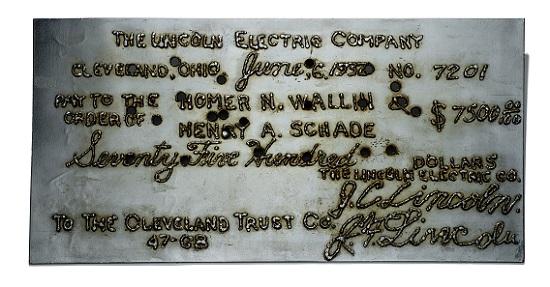 THE LINCOLN ELECTRIC COMPANY
CLEVELAND, OHIO June, 6, 1932 NO. 7201
PAY TO THE ORDER OF HOMER N. WALLIN &
HENRY A. SCHADE $ 7500.00
Seventy Five Hundred DOLLARS
THE LINCOLN ELECTRIC CO.
J. C. Lincoln.
TO THE CLEVELAND TRUST CO.
J. F. Lincoln
47-68